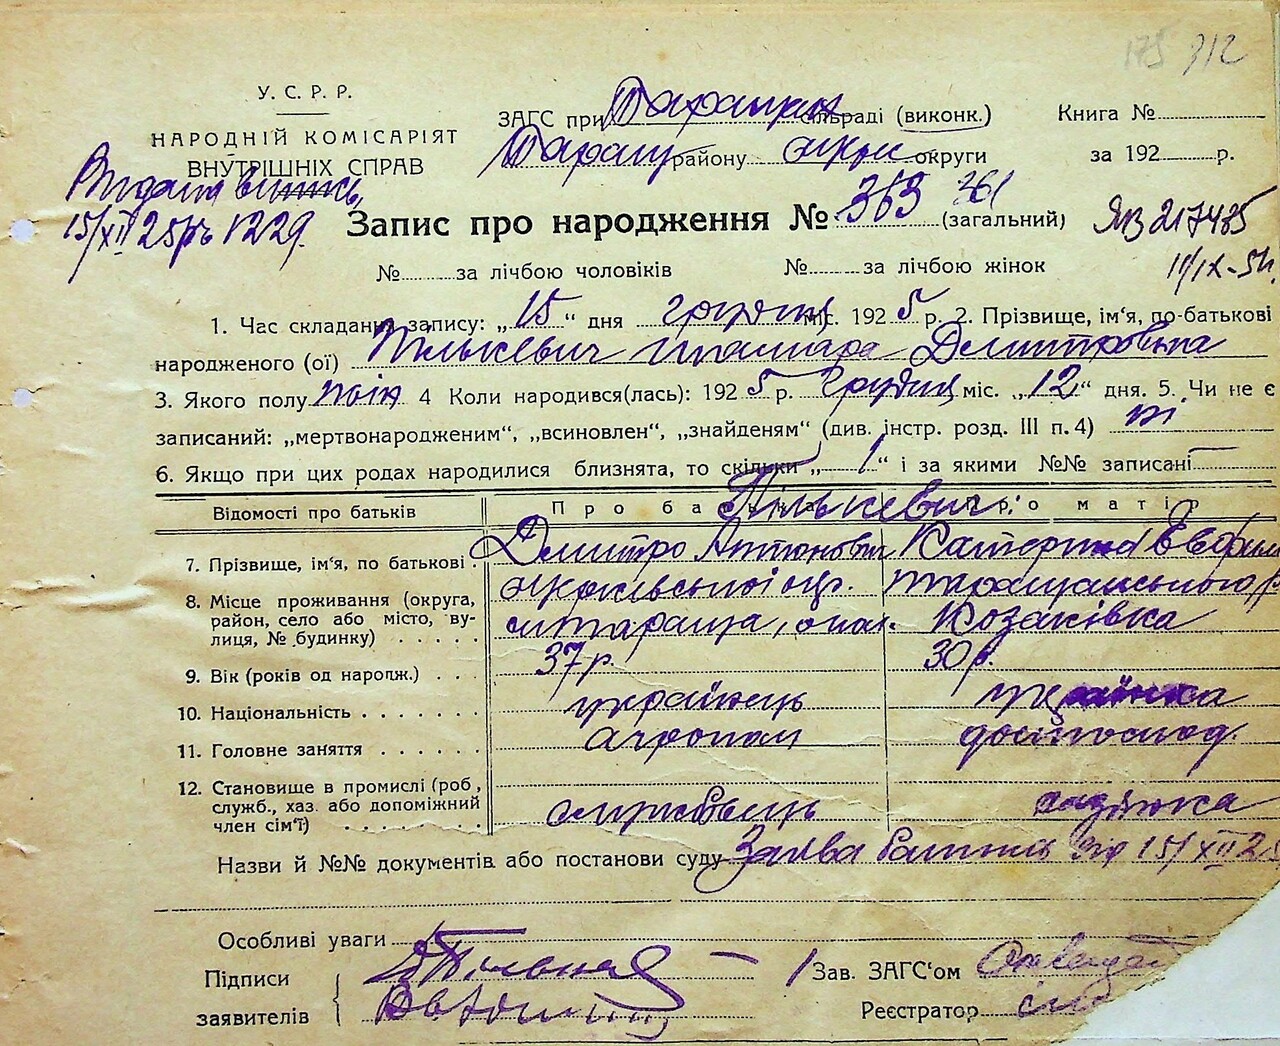 175 912
У. С. Р. Р.
НАРОДНІЙ КОМІСАРІЯТ
ВНУТРІШНІХ СПРАВ
ЗАГС при Таращан сільраді (виконк.)
Таращ району округи
Книга №
за 192 р.
15/XII 25р № 1229.
Запис про народження № 363 361 (загальний)
ЯМЗ 217485
11/IX-54.
№ за лічбою чоловіків № за лічбою жінок
1. Час складання запису: „15“ дня грудня міс. 1925 р. 2. Прізвище, ім‘я, по-батькові
народженого (ої) Пількевич Тамара Дмитровна
3. Якого полу жін 4 Коли народився(лась): 1925 р. грудня міс. „12“ дня. 5. Чи не є
записаний: „мертвонародженим“, „всиновлен“, „знайденям“ (див. інстр. розд. III п. 4) ні.
6. Якщо при цих родах народилися близнята, то скільки „1“ і за якими №№ записані
Відомості про батьків Про батька Про матір
Пількевич:
7. Прізвище, ім‘я, по батькові Дмитро Антонович Катерина Евфим
8. Місце проживання (округа,
район, село або місто, ву-
лиця, № будинку)
м Тараща, Козаківка
9. Вік (років од народж.) 37 р. 30 р.
10. Національність українець українка
11. Головне заняття агроном дом господ.
12. Становище в промислі (роб,
служб., хаз. або допоміжний
член сім‘ї) службовець хазяйка
Назви й №№ документів або постанови суду Заява батька від 15/XII 25
Особливі уваги
Підписи
заявителів
Зав. ЗАГС‘ом
Реєстратор